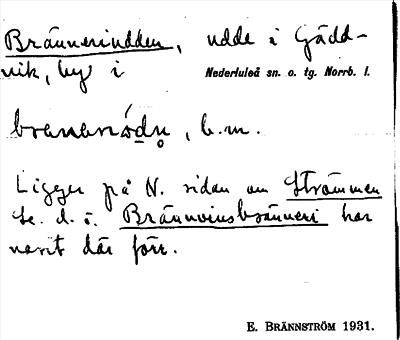 Bränneriudden, udde i Gädd-
vik, by i Nederluleå sn. o. tg. Norrb. l.
b.m.
Ligger på N. sidan om Strömmen
Se. d. o. Brännvinsbränneri har
varit där förr.
E. BRÄNNSTRÖM 1931.